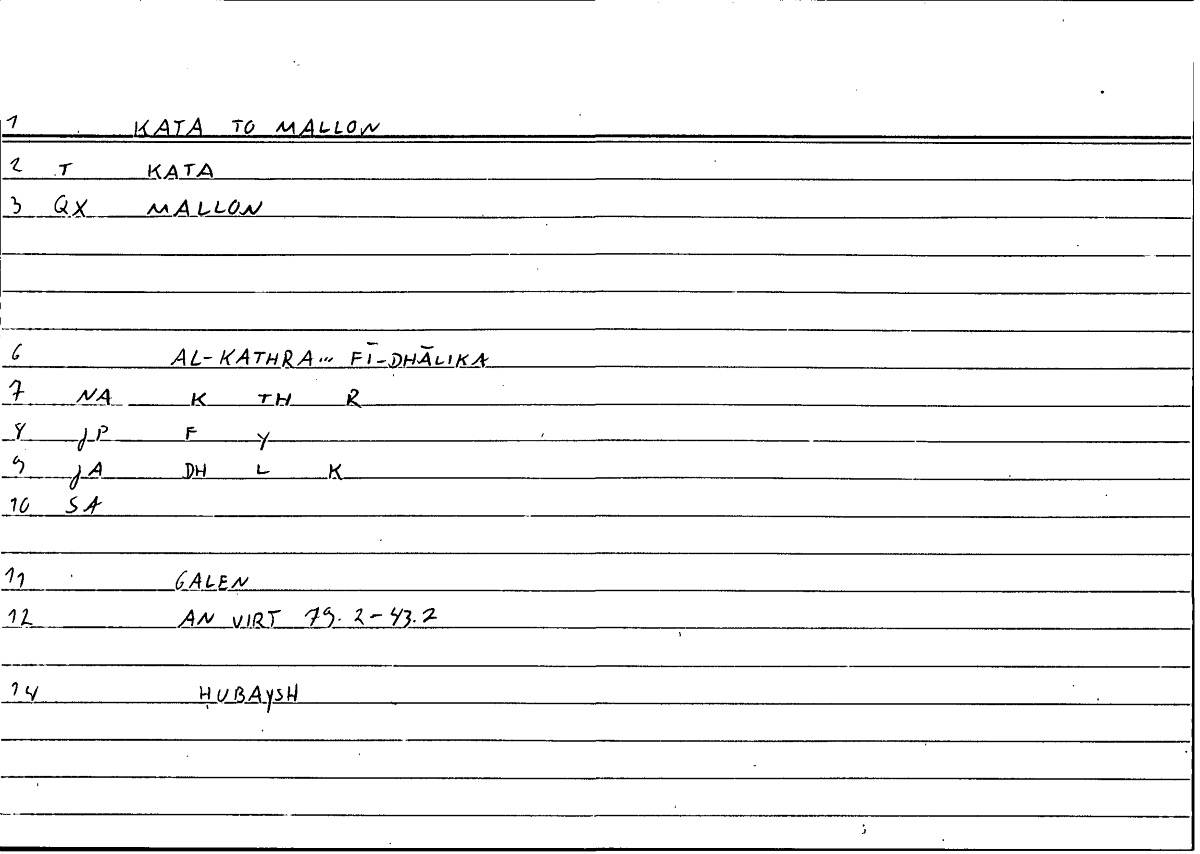 1 KATA TO MALLON
2 T KATA
3 QX MALLON
6 AL-KATHRA... FĪ-DHĀLIKA
7 NA K TH R
8 JP F Y
9 JA DH L K
10 SA
11 GALEN
12 AN VIRT 79.2-43.2
14 ḤUBAYSH